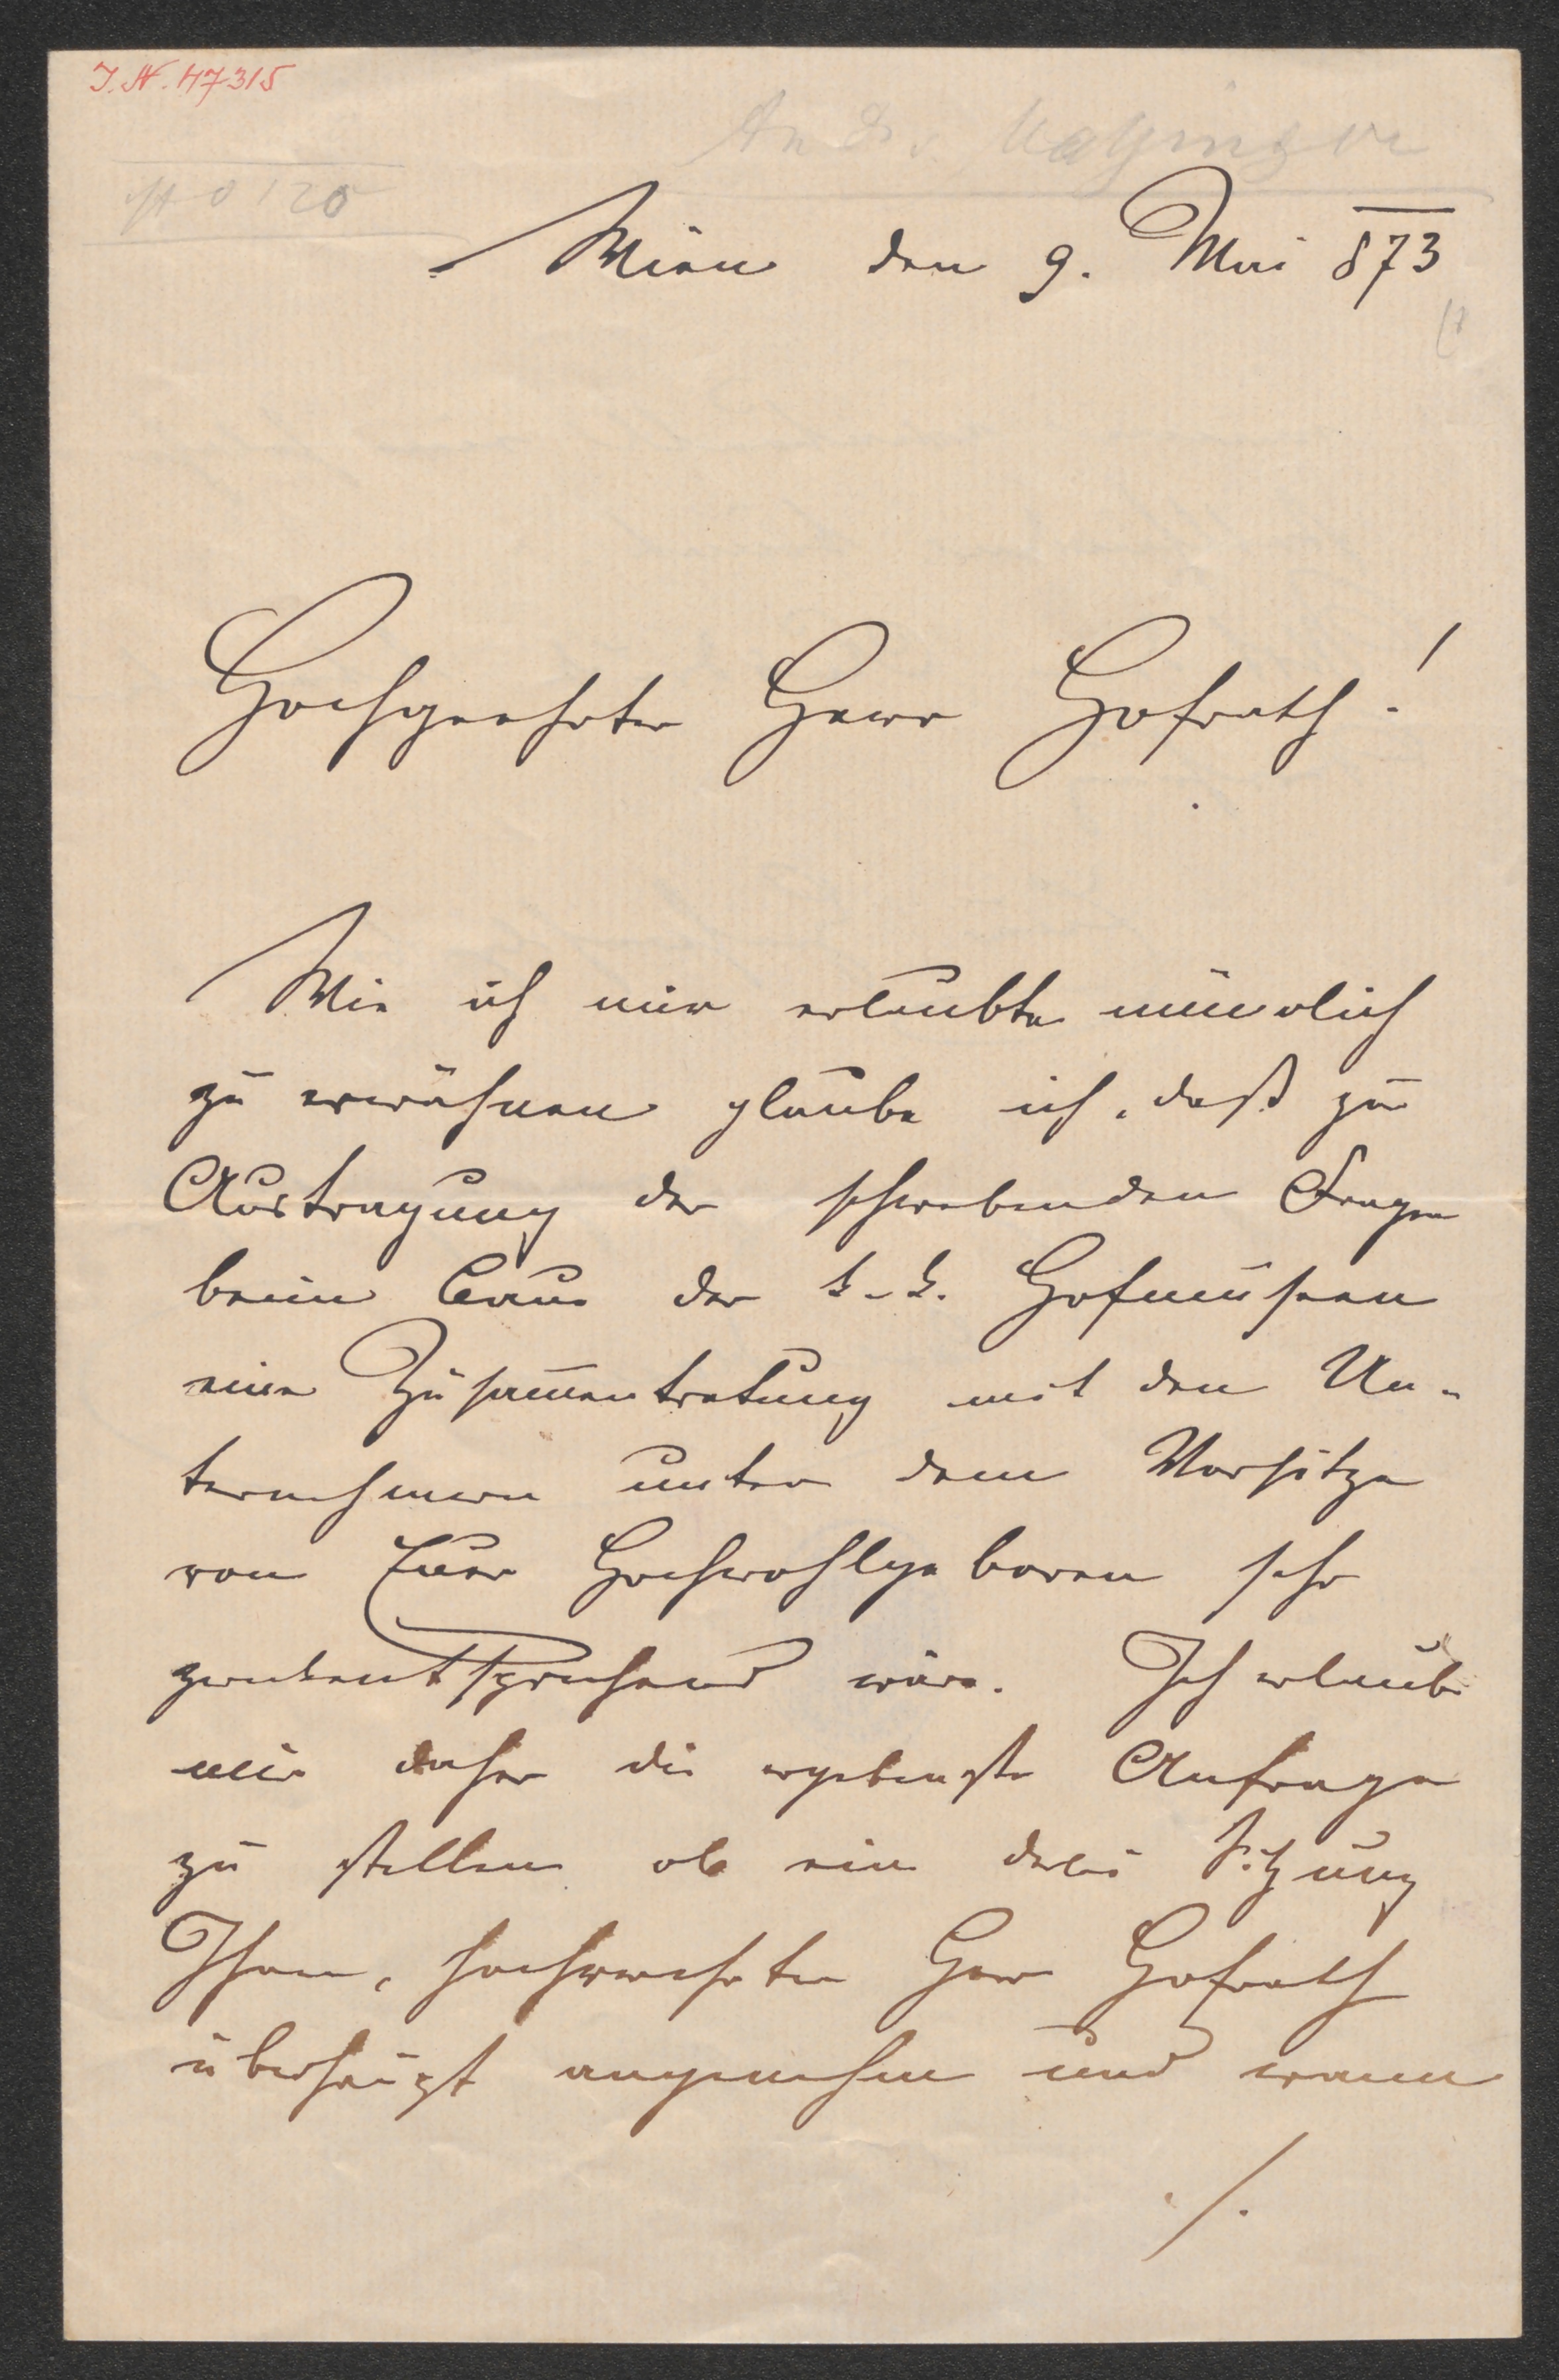 I.N. 47315
An Dr. Matzinger
Wien den 9. Mai 873
Hochgeehrter Herr Hofrath!
Wie ich mir erlaubte mündlich
zu erwähnen glaube ich, daß zur
Austragung der schwebenden Fragen
beim Baue der k. k. Hofmuseen
eine Zusam̅entretung mit den Un-
ternehmern unter dem Vorsitze
von Euer Hochwohlgeboren sehr
zweckentsprechend wäre. Ich erlaube
mir daher die ergebenste Anfrage
zu stellen ob eine derlei Sitzung
Ihnen, hochverehrter Herr Hofrath
überhaupt angenehm und wann
./.